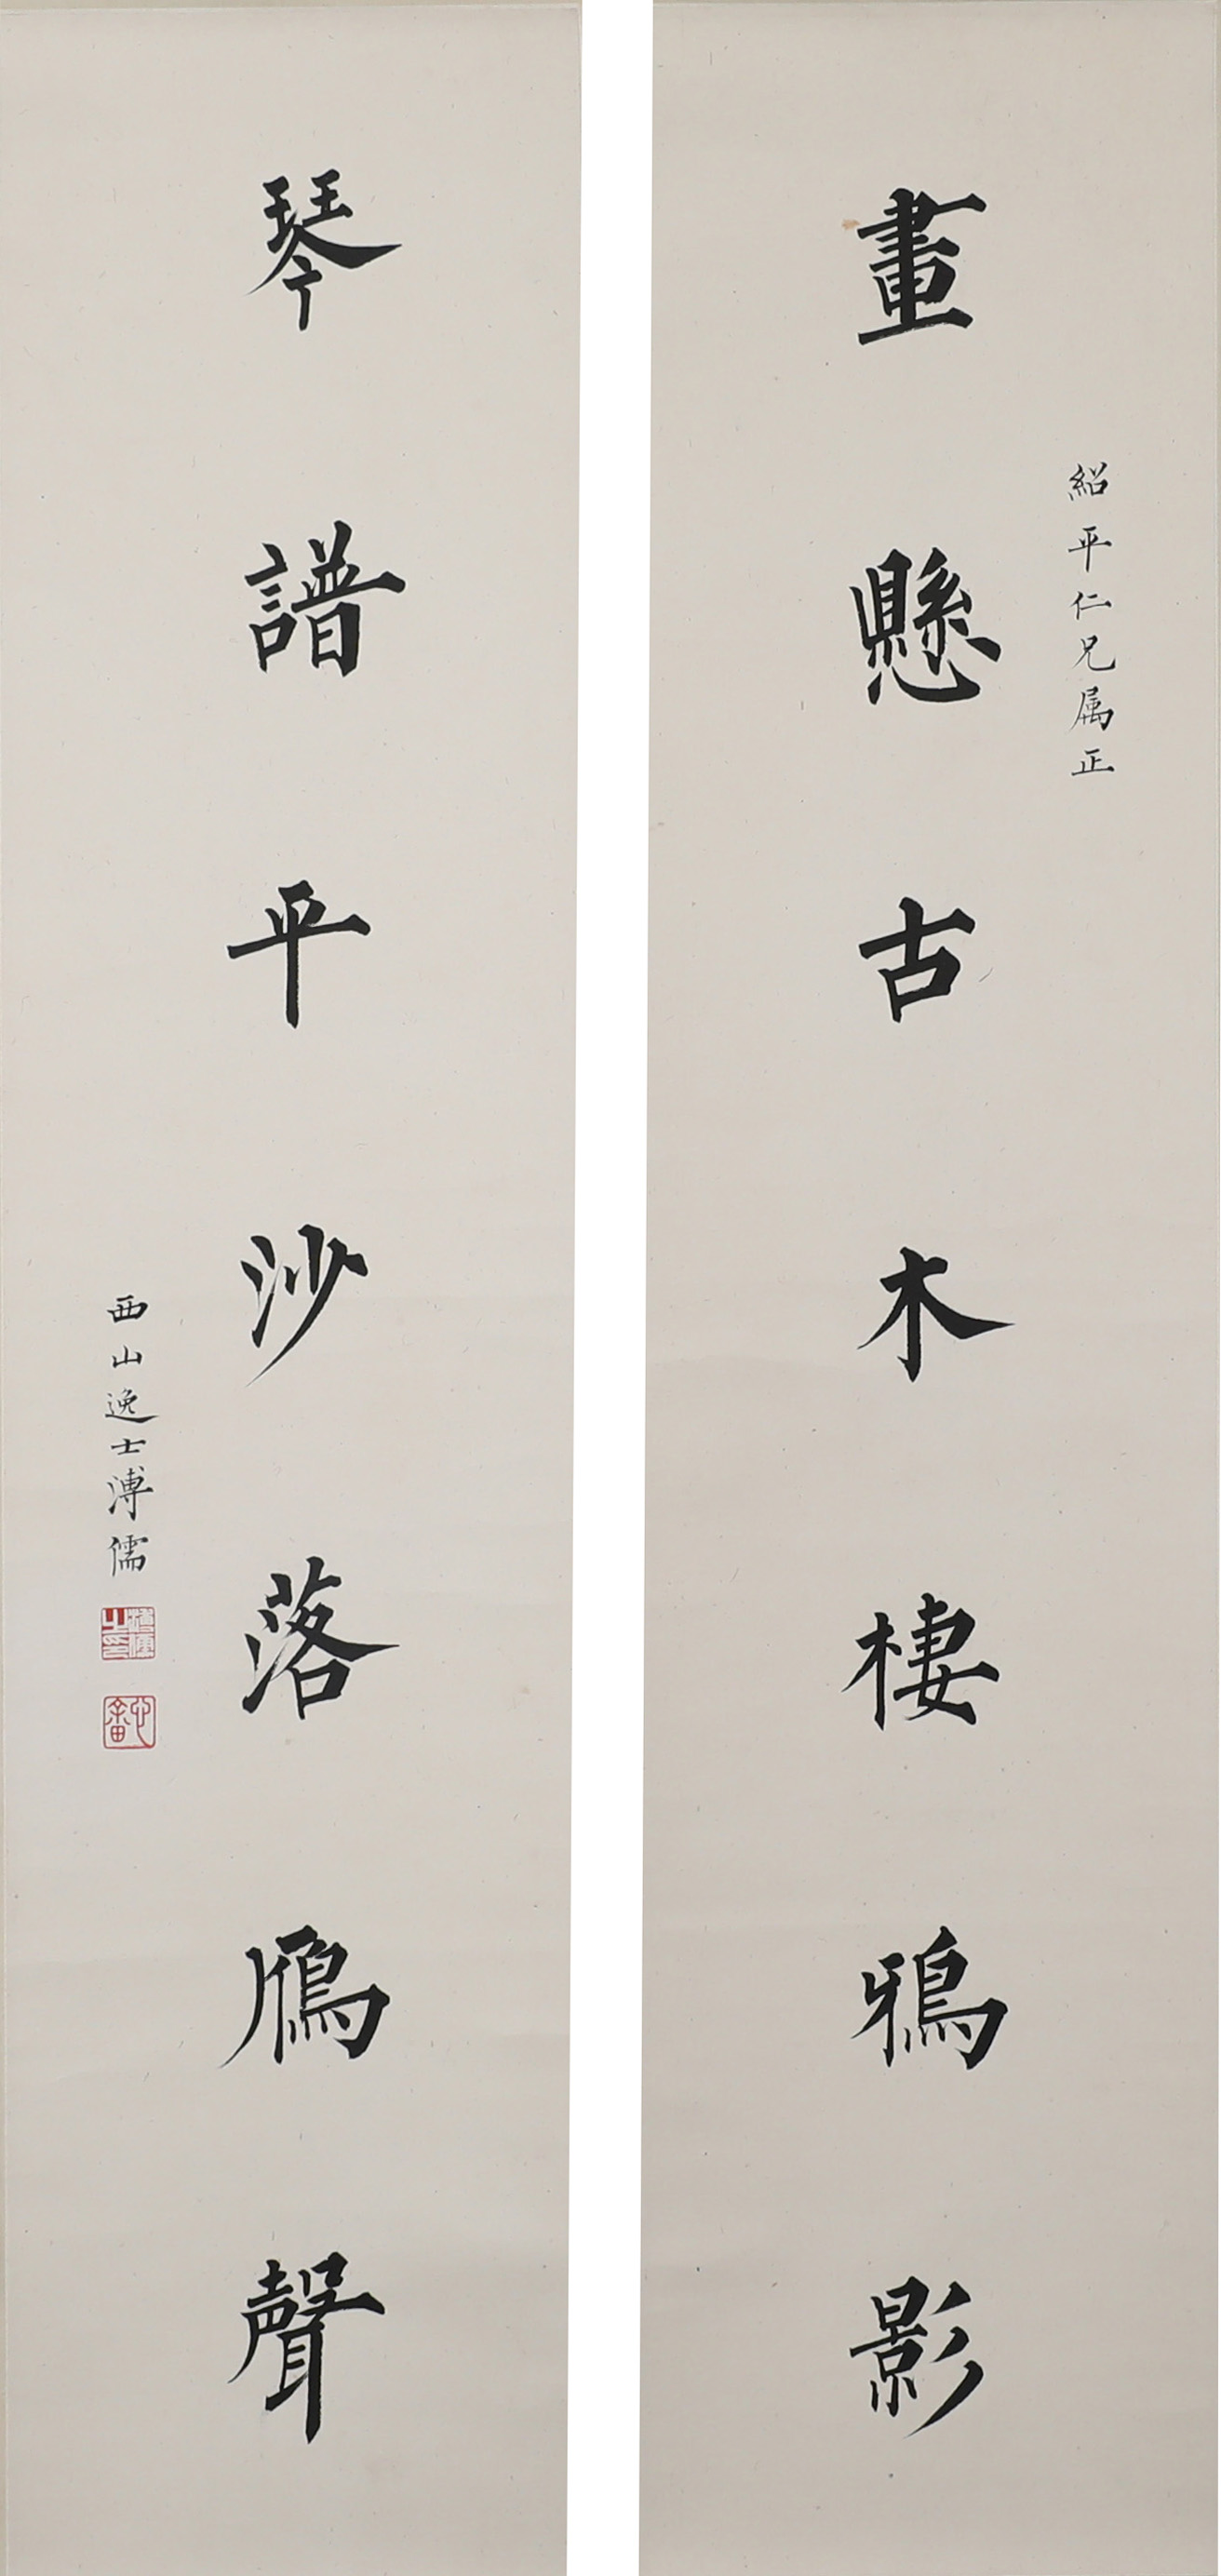 畫懸古木棲鴉影
紹平仁兄属正
琴譜平沙落鴈聲
西山逸士溥儒
心畬